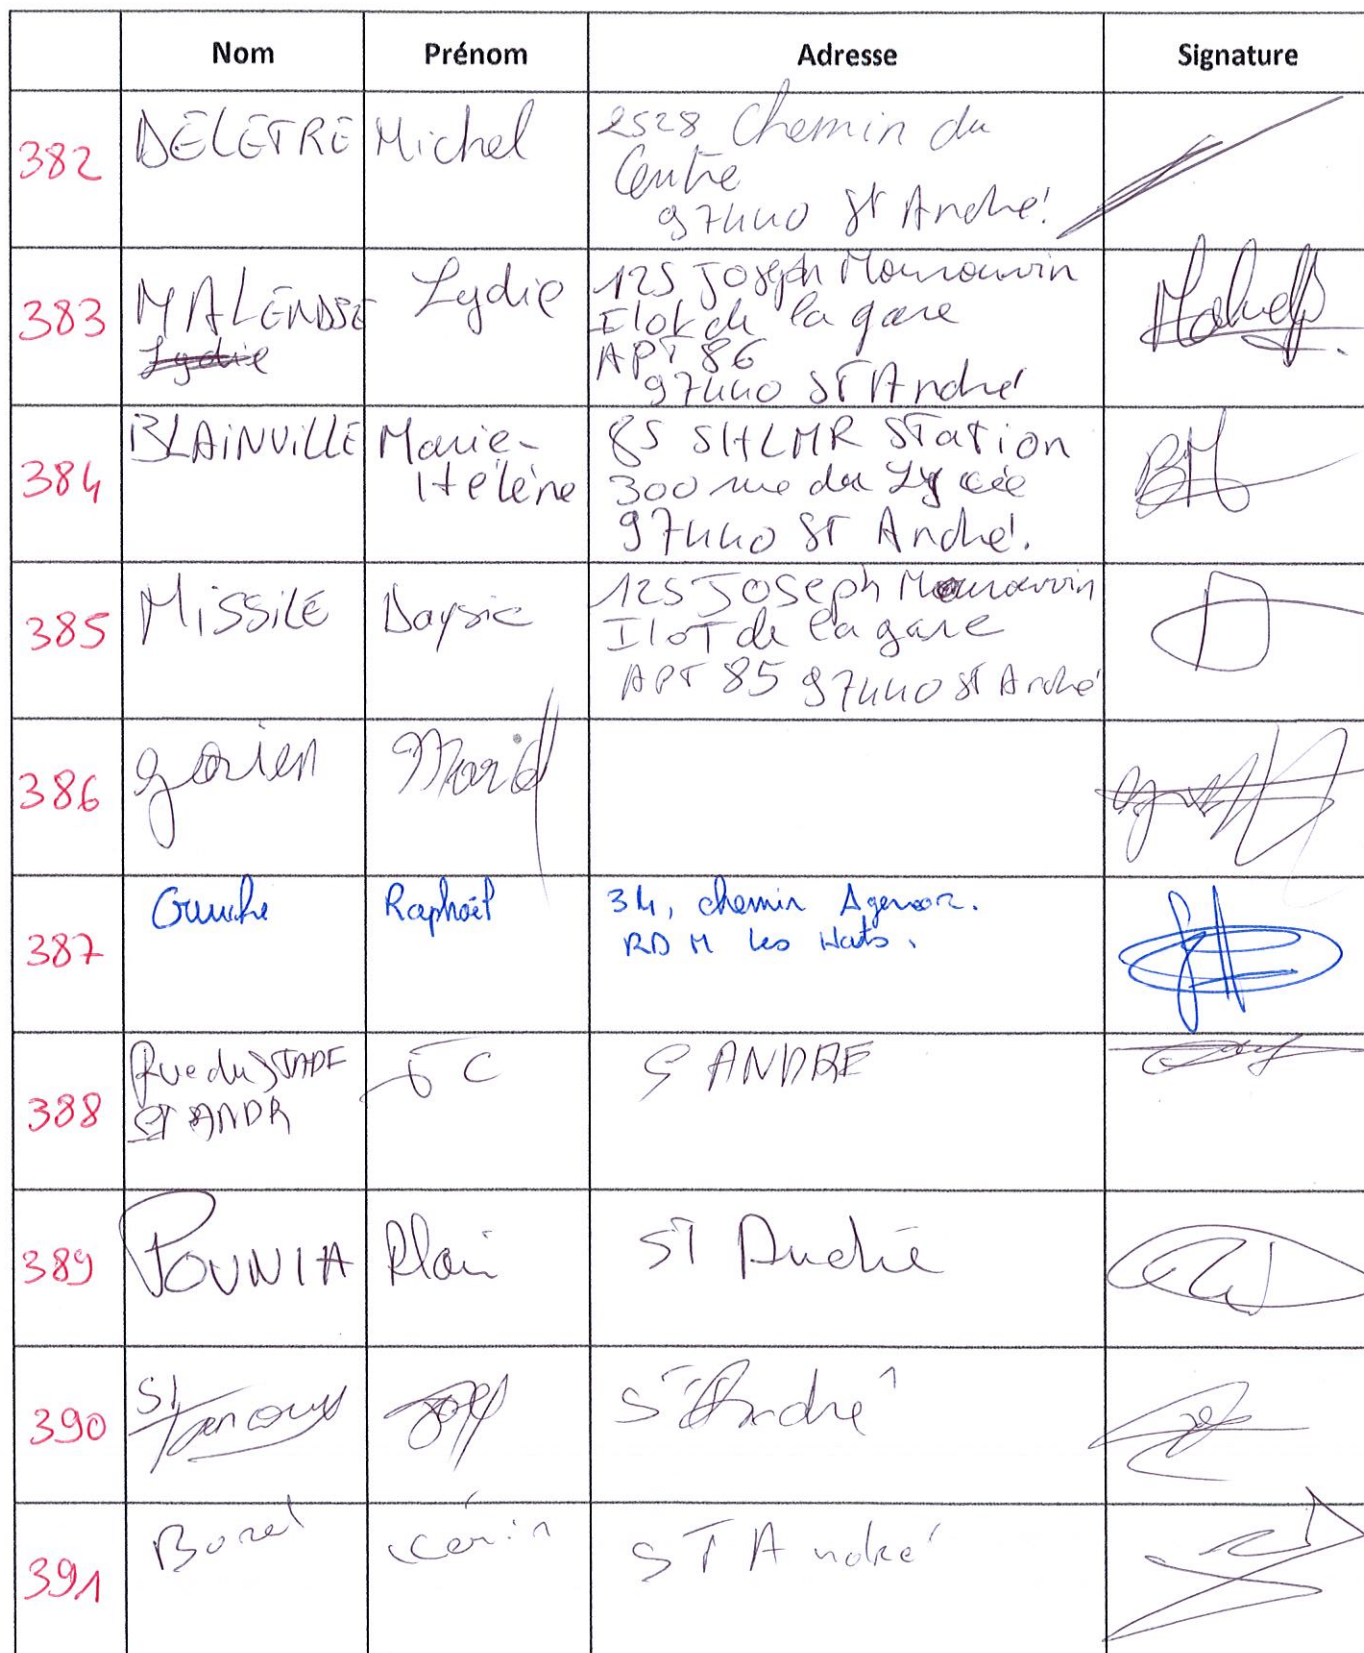 Nom Prénom Adresse Signature
382 DELETRE Michel 2528 Chemin du
Centre
97440 St André
383 Lydie 125 Joseph Mourouvin
Ilot de la gare
Lydie APT 86
97440 ST André
384 BLAINVILLE Marie- 85 SHLMR STation
Hélène 300 rue du Lycée
97440 ST André.
385 MissiLE Daysie 125 Joseph Mourouvin
IloT de la gare
APT 85 97440 ST André
386
387 Raphaël 34, chemin Agenor.
RD M les Hauts.
388 Rue du STADE C S ANDRE
ST ANDR
389 POUNIA Alain ST André
390 St André
391 ST André